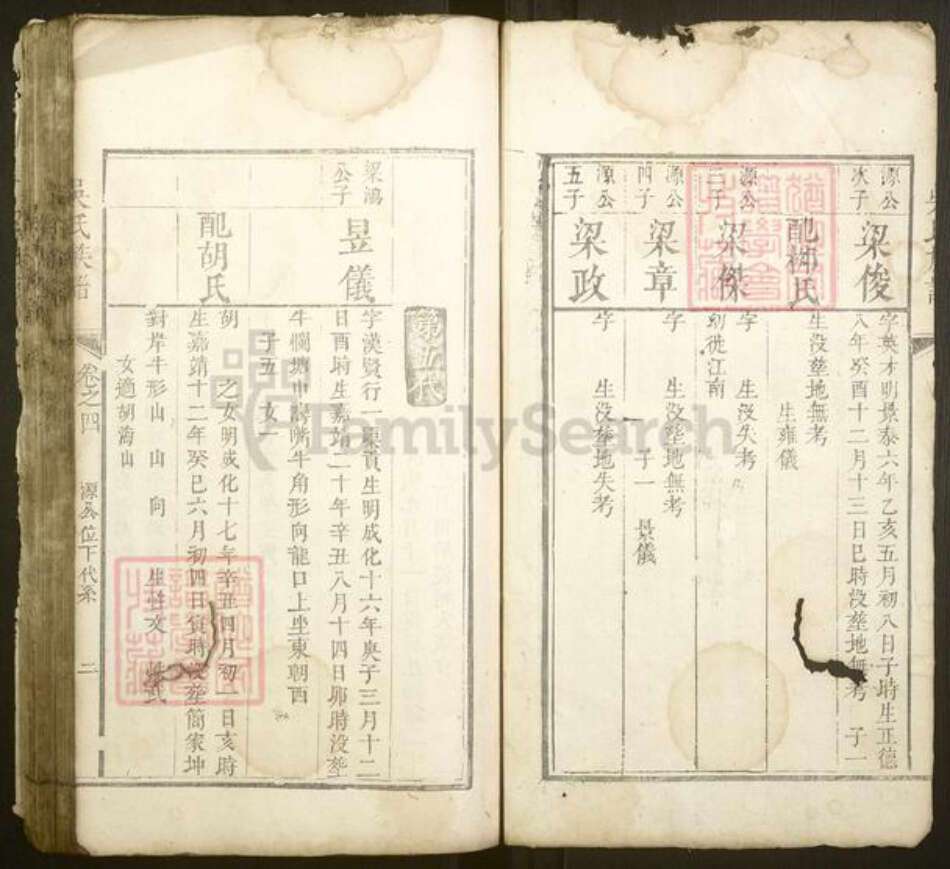 源公
次子
梁俊
字英才明景泰六年乙亥五月初八日子時生正德
八年癸酉十二月十三日巳時没塟地無考 子一
配柳氏
生没塟地無考
生雍儀
源公
三子
梁傑
字 生没失考
幼徙江南
源公
四子
梁章
字 生没塟地無考
子一 景儀
源公
五子
梁政
字 生没塟地失考
第五代
梁鴻
公子
昱儀
字漢賢行一粟貢生明成化十六年庚子三月十二
日酉時生嘉靖二十年辛丑八月十四日卯時没塟
牛欄塘中 嘴牛角形向龍口上坐東朝西
子五 女一
配胡氏
胡 之女明成化十七年辛丑四月初一日亥時
生嘉靖十二年癸巳六月初四日寅時没塟簡家坤
對岸牛形山 山 向 生 文 武
女適胡海山
吳氏族譜
卷之四
源公位下代系
二
FamilySearch